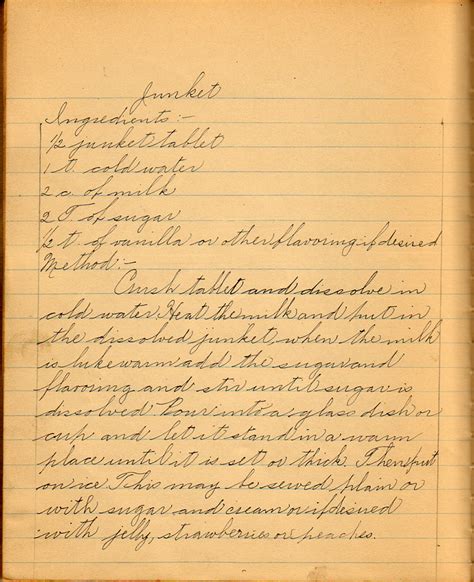 Junket
Ingredients:-
½ junket tablet
1 t. cold water
2 c. of milk
2 T. of sugar
½ t. of vanilla or other flavoring if desired
Method:-
Crush tablet and dissolve in
cold water. Heat the milk and put in
the dissolved junket, when the milk
is lukewarm add the sugar and
flavoring and stir until sugar is
dissolved. Pour into a glass dish or
cup and let it stand in a warm
place until it is set or thick. Then put
on ice. This may be served plain or
with sugar and cream or if desired
with jelly, strawberries or peaches.